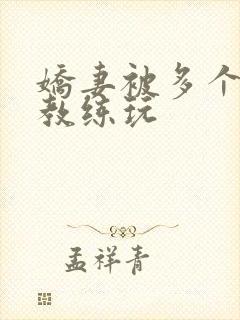 嬌妻被多个
教练玩
孟祥青